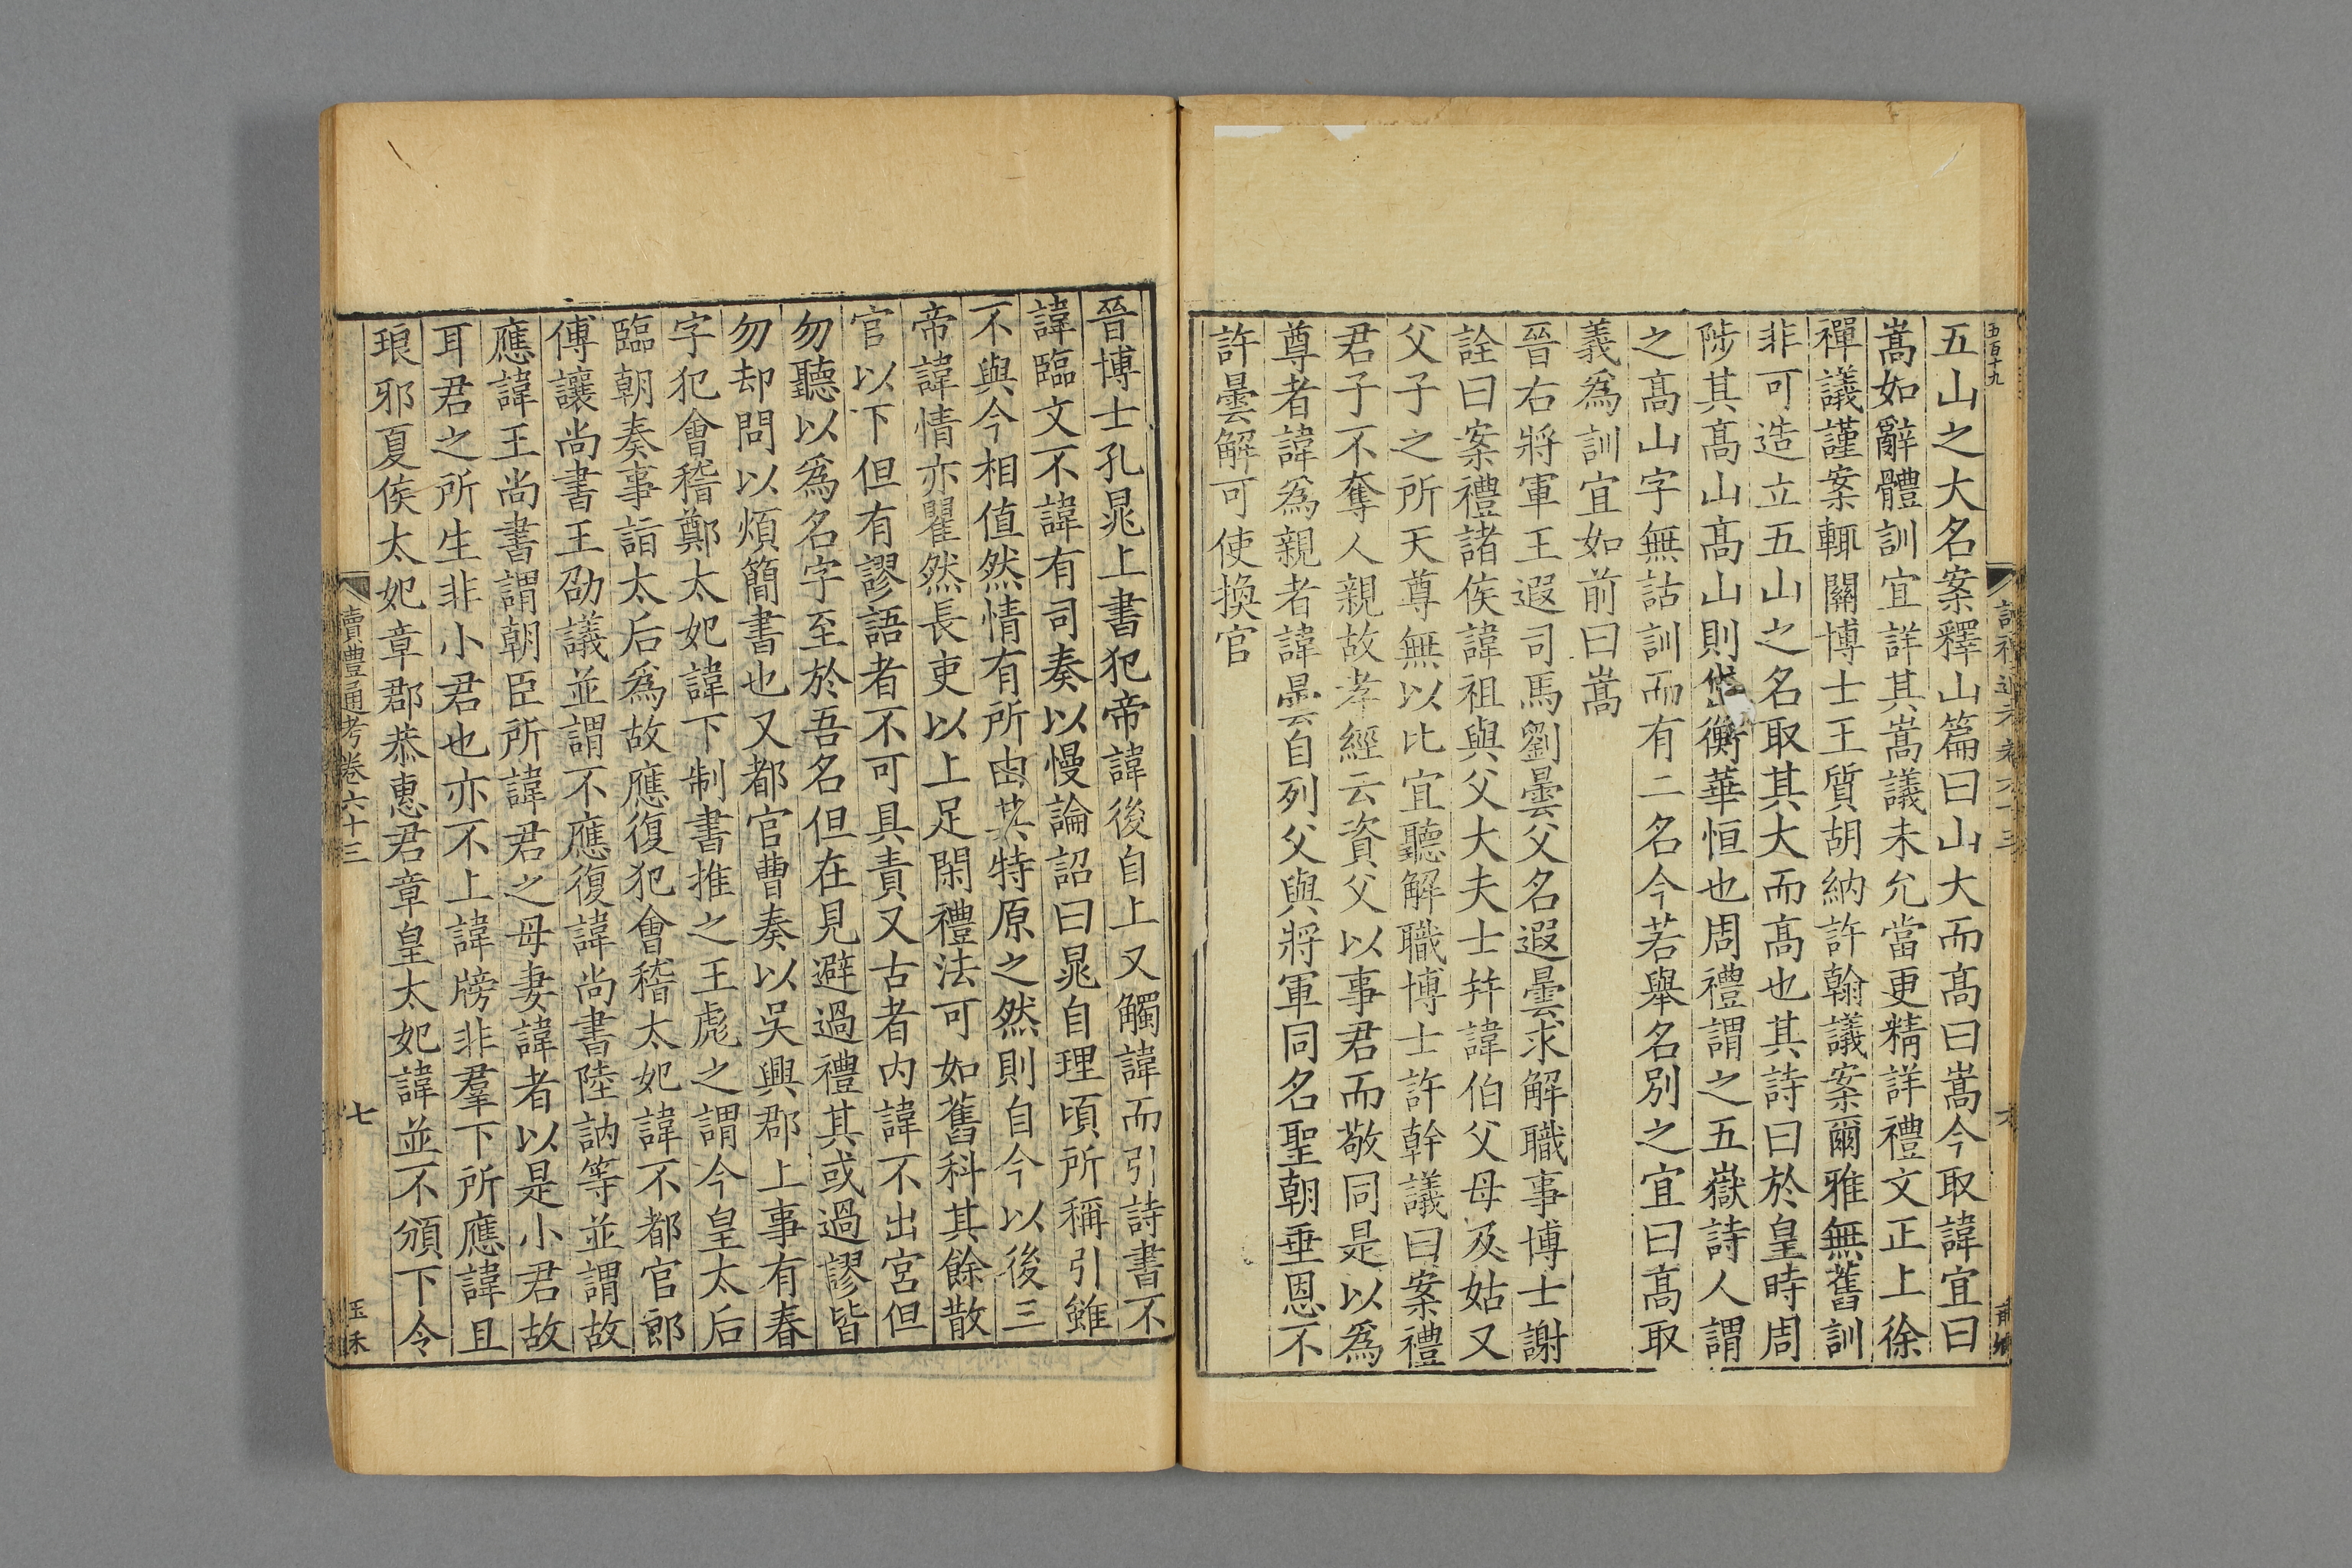 五百十九
五山之大名案釋山篇曰山大而髙曰嵩今取諱宜曰
嵩如辭體訓宜詳其嵩議未允當更精詳禮文正上徐
禪議謹案輒關博士王質胡納許翰議案爾雅無舊訓
非可造立五山之名取其大而髙也其詩曰於皇時周
陟其髙山髙山則岱衡華恒也周禮謂之五嶽詩人謂
之髙山字無詁訓而有二名今若舉名別之宜曰髙取
義為訓宜如前曰嵩
晉右將軍王遐司馬劉曇父名遐曇求解職事博士謝
詮曰案禮諸侯諱祖與父大夫士并諱伯父母及姑又
父子之所天尊無以比宜聽解職博士許幹議曰案禮
君子不奪人親故孝經云資父以事君而敬同是以為
尊者諱為親者諱曇自列父與將軍同名聖朝垂恩不
許曇解可使換官
晉博士孔晁上書犯帝諱後自上又觸諱而引詩書不
諱臨文不諱有司奏以慢論詔曰晁自理頃所稱引雖
不與今相值然情有所由其特原之然則自今以後三
帝諱情亦瞿然長吏以上足閑禮法可如舊科其餘散
官以下但有謬語者不可具責又古者内諱不出宮但
勿聽以為名字至於吾名但在見避過禮其或過謬皆
勿却問以煩簡書也又都官曹奏以吳興郡上事有春
字犯會稽鄭太妃諱下制書推之王彪之謂今皇太后
臨朝奏事詣太后為故應復犯會稽太妃諱不都官郎
傅讓尚書王劭議並謂不應復諱尚書陸訥等並謂故
應諱王尚書謂朝臣所諱君之母妻諱者以是小君故
耳君之所生非小君也亦不上諱牓非羣下所應諱且
琅邪夏侯太妃章郡恭惠君章皇太妃諱並不頒下令
讀禮通考卷六十三
七